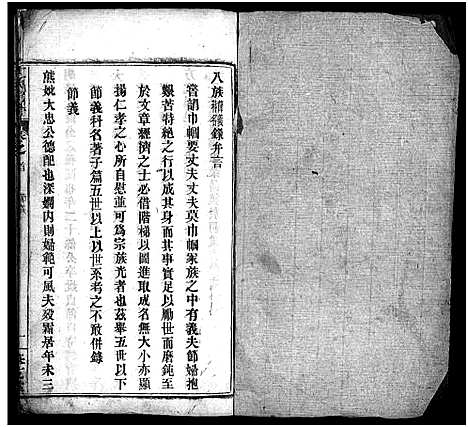 八族褒儀錄弁言
嘗謂巾幗要丈夫丈夫莫巾幗家族之中有義夫節婦抱
艱苦特絶之行以成其身而其事實足以勵世而磨鈍至
於文章經濟之士必借階梯以圖進取成名無大小亦顯
揚仁孝之心所自慰並可為宗族光者也茲舉五世以下
節義科名著于篇五世以上以世系考之不敢併錄
節義
熊妣大忠公德配也深嫻內則婦範可風夫歿霜居年未三